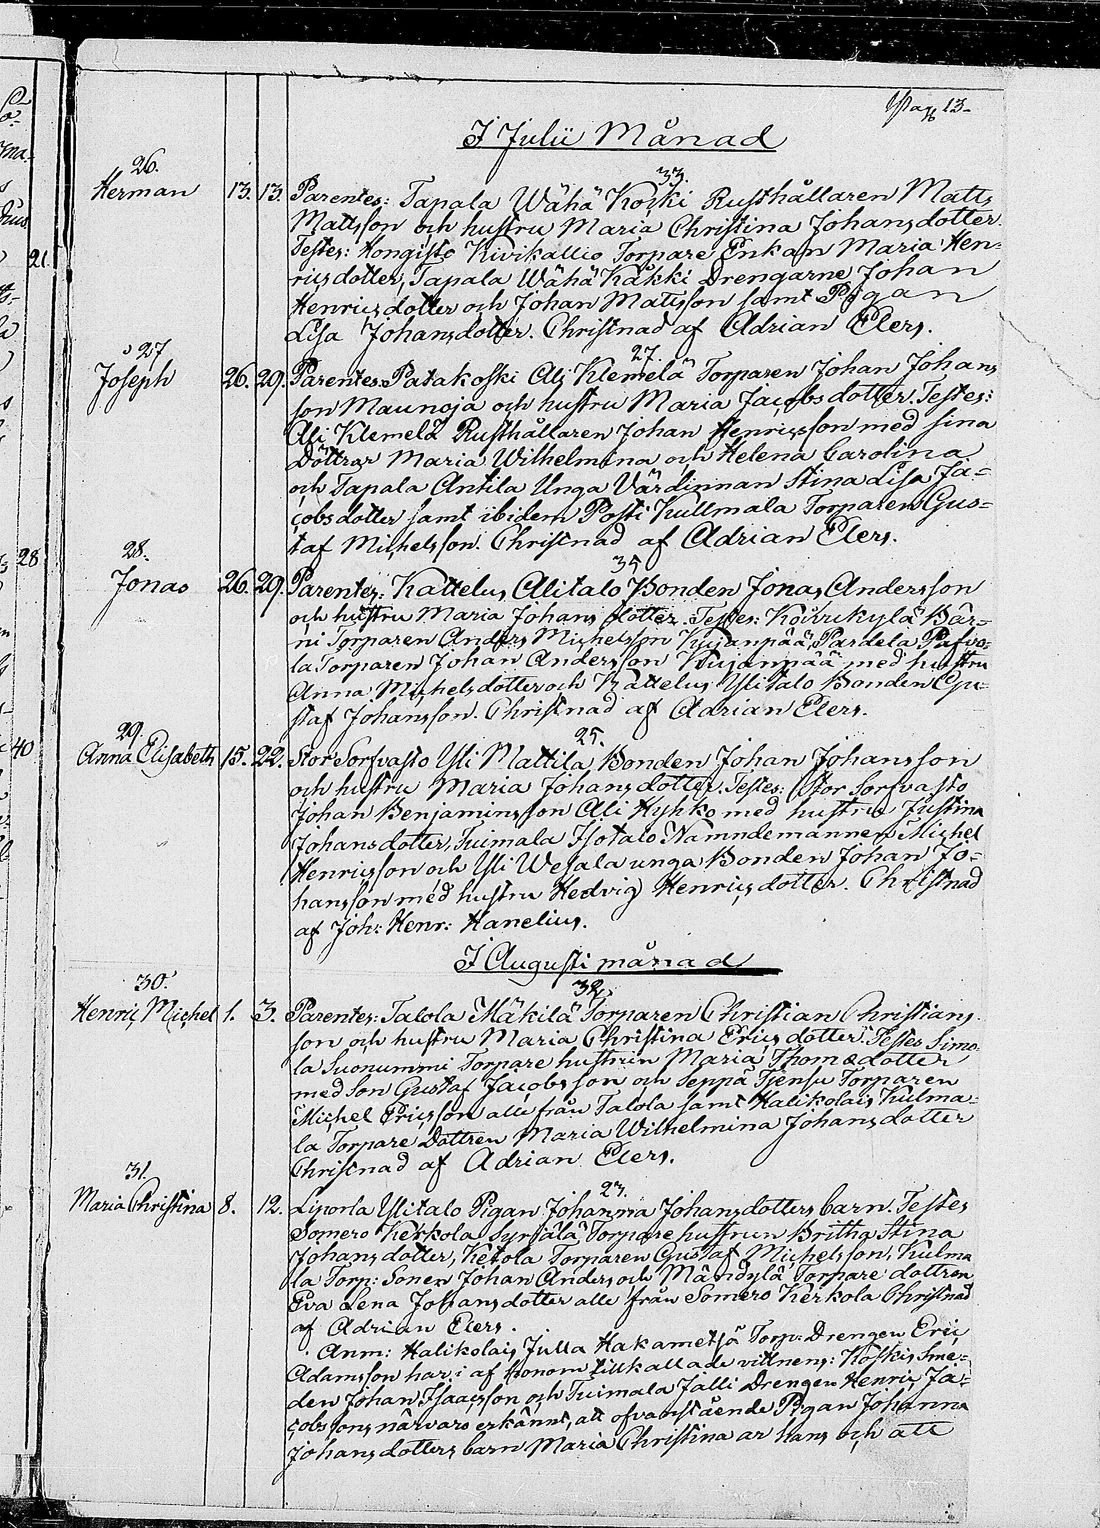 Pag 13.
I Julii Månad
26.
Herman 13. 13.
33.
Parentes: Tapala Wähä Koski Rusthållaren Matts
Mattsson och hustru Maria Christina Johansdotter.
Testes: Hongisto Kivikallio Torpare Enkan Maria Hen-
ricsdotter, Tapala Wähä Käkki Drengarne Johan
Henricsdotter och Johan Mattsson samt Pigan
Lisa Johansdotter. Christnad af Adrian Elers.
27
Joseph 26. 29.
27.
Parentes: Patakoski Ali Klemelä Torparen Johan Johans
son Maunoja och hustru Maria Jacobsdotter. Testes:
Ali Klemelä Rusthållaren Johan Henricsson med sina
Döttrar Maria Wilhelmina och Helena Carolina
och Tapala Antila Unga Värdinnan Stina Lisa Ja-
cobsdotter samt ibidem Posti Kullmala Torparen Gus-
taf Michelsson. Christnad af Adrian Elers.
28.
Jonas 26. 29.
35
Parentes: Kattelus Alitalo Bonden Jonas Andersson
och hustru Maria Johansdotter. Testes: Koivukylä Bär-
ni Torparen Anders Michelsson Kujanpää, Pardela Pafvo-
la Torparen Johan Andersson Kujanpää med hustru
Anna Michelsdotter och Kattelus Ylitalo Bonden Gu-
staf Johansson. Christnad af Adrian Elers.
29.
Anna Elisabeth 15. 22.
25.
Stor Sorfvasto Yli Mattila Bonden Johan Johansson
och hustru Maria Johansdotter. Testes: Stor Sorfvasto
Johan Benjaminsson Ali Hyhko med hustru Justina
Johansdotter, Tuimala Isotalo Nämndemannen Michel
Henricsson och Yli Wesala unga Bonden Johan Jo-
hansson med hustru Hedvig Henricsdotter. Christnad
af Joh: Henr: Hanelius.
I Augusti månad
30.
Henric Michel 1. 3.
32.
Parentes: Talola Mäkilä Torparen Christian Christians
son och hustru Maria Christina Ericsdotter. Testes Simo-
la Suonummi Torpare hustrun Maria Thomædotter
med Son Gustaf Jacobsson och Seppä Tjensu Torparen
Michel Ericsson alle från Talola samt Halikolais Kulma-
la Torpare Dottren Maria Wilhelmina Johansdotter
Christnad af Adrian Elers.
31.
Maria Christina 8. 12.
23.
Liponla Ylitalo Pigan Johanna Johansdotters barn. Testes
Somero Kerkola Syrjälä Torpare hustrun Britha Stina
Johansdotter, Ketola Torparen Gustaf Michelsson, Kulma
la Torp: Sonen Johan Anders och Mändylä Torpare dottren
Eva Lena Johansdotter alle från Somero Kerkola Christnad
af Adrian Elers.
Anm: Halikolais Julla Hakametsä Torp: Drengen Eric
Adamsson har i af honom tillkallade vittnens: Koskis Sme-
den Johan Isaacsson och Tuimala Jälli Drengen Henric Ja-
cobssons närvaro erkännt, att ofvanstående Pigan Johanna
Johansdotters barn Maria Christina är hans och att